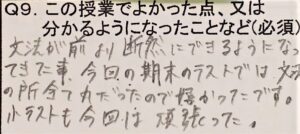 Q9. この授業でよかった点、又は
分かるようになったことなど(必須)
文法が前より断然にできるようになっ
てきた事、今回の期末のテストでは文法
の所全て力だったので良かったです。
小テストも今回は頑張った。